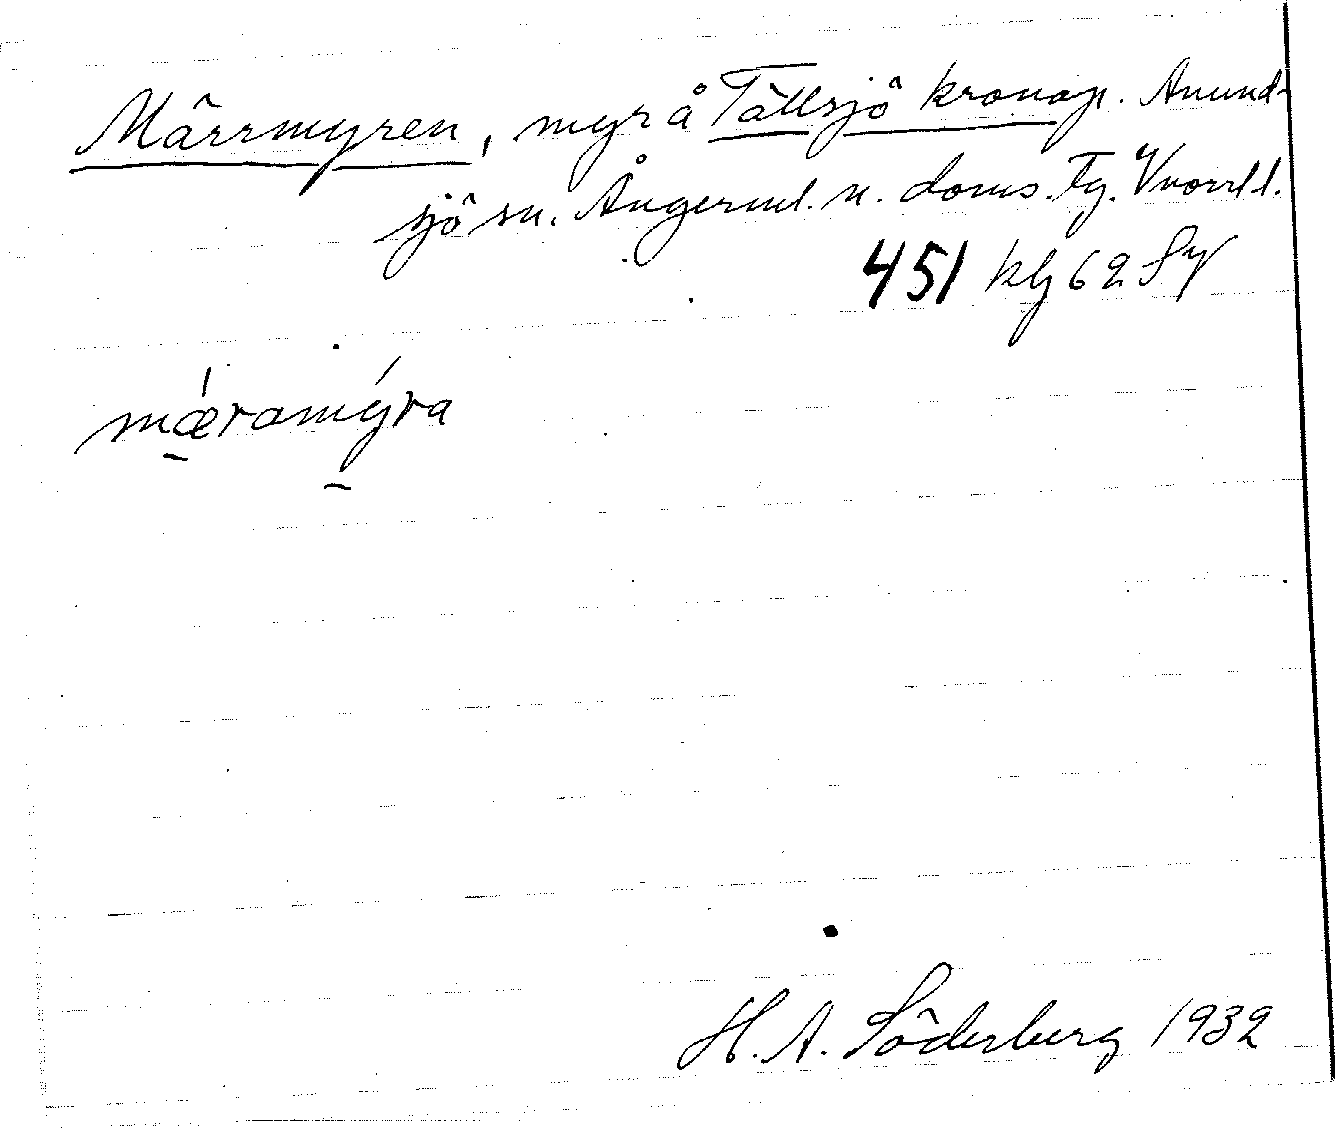 Märrmyren, myr å Tällsjö kronop. Anund-
sjö sn. Ångerml. n. doms. Tg. Vnorrl l.
451 klj 62 Sy
mǽramýra
H. A. Söderberg 1932